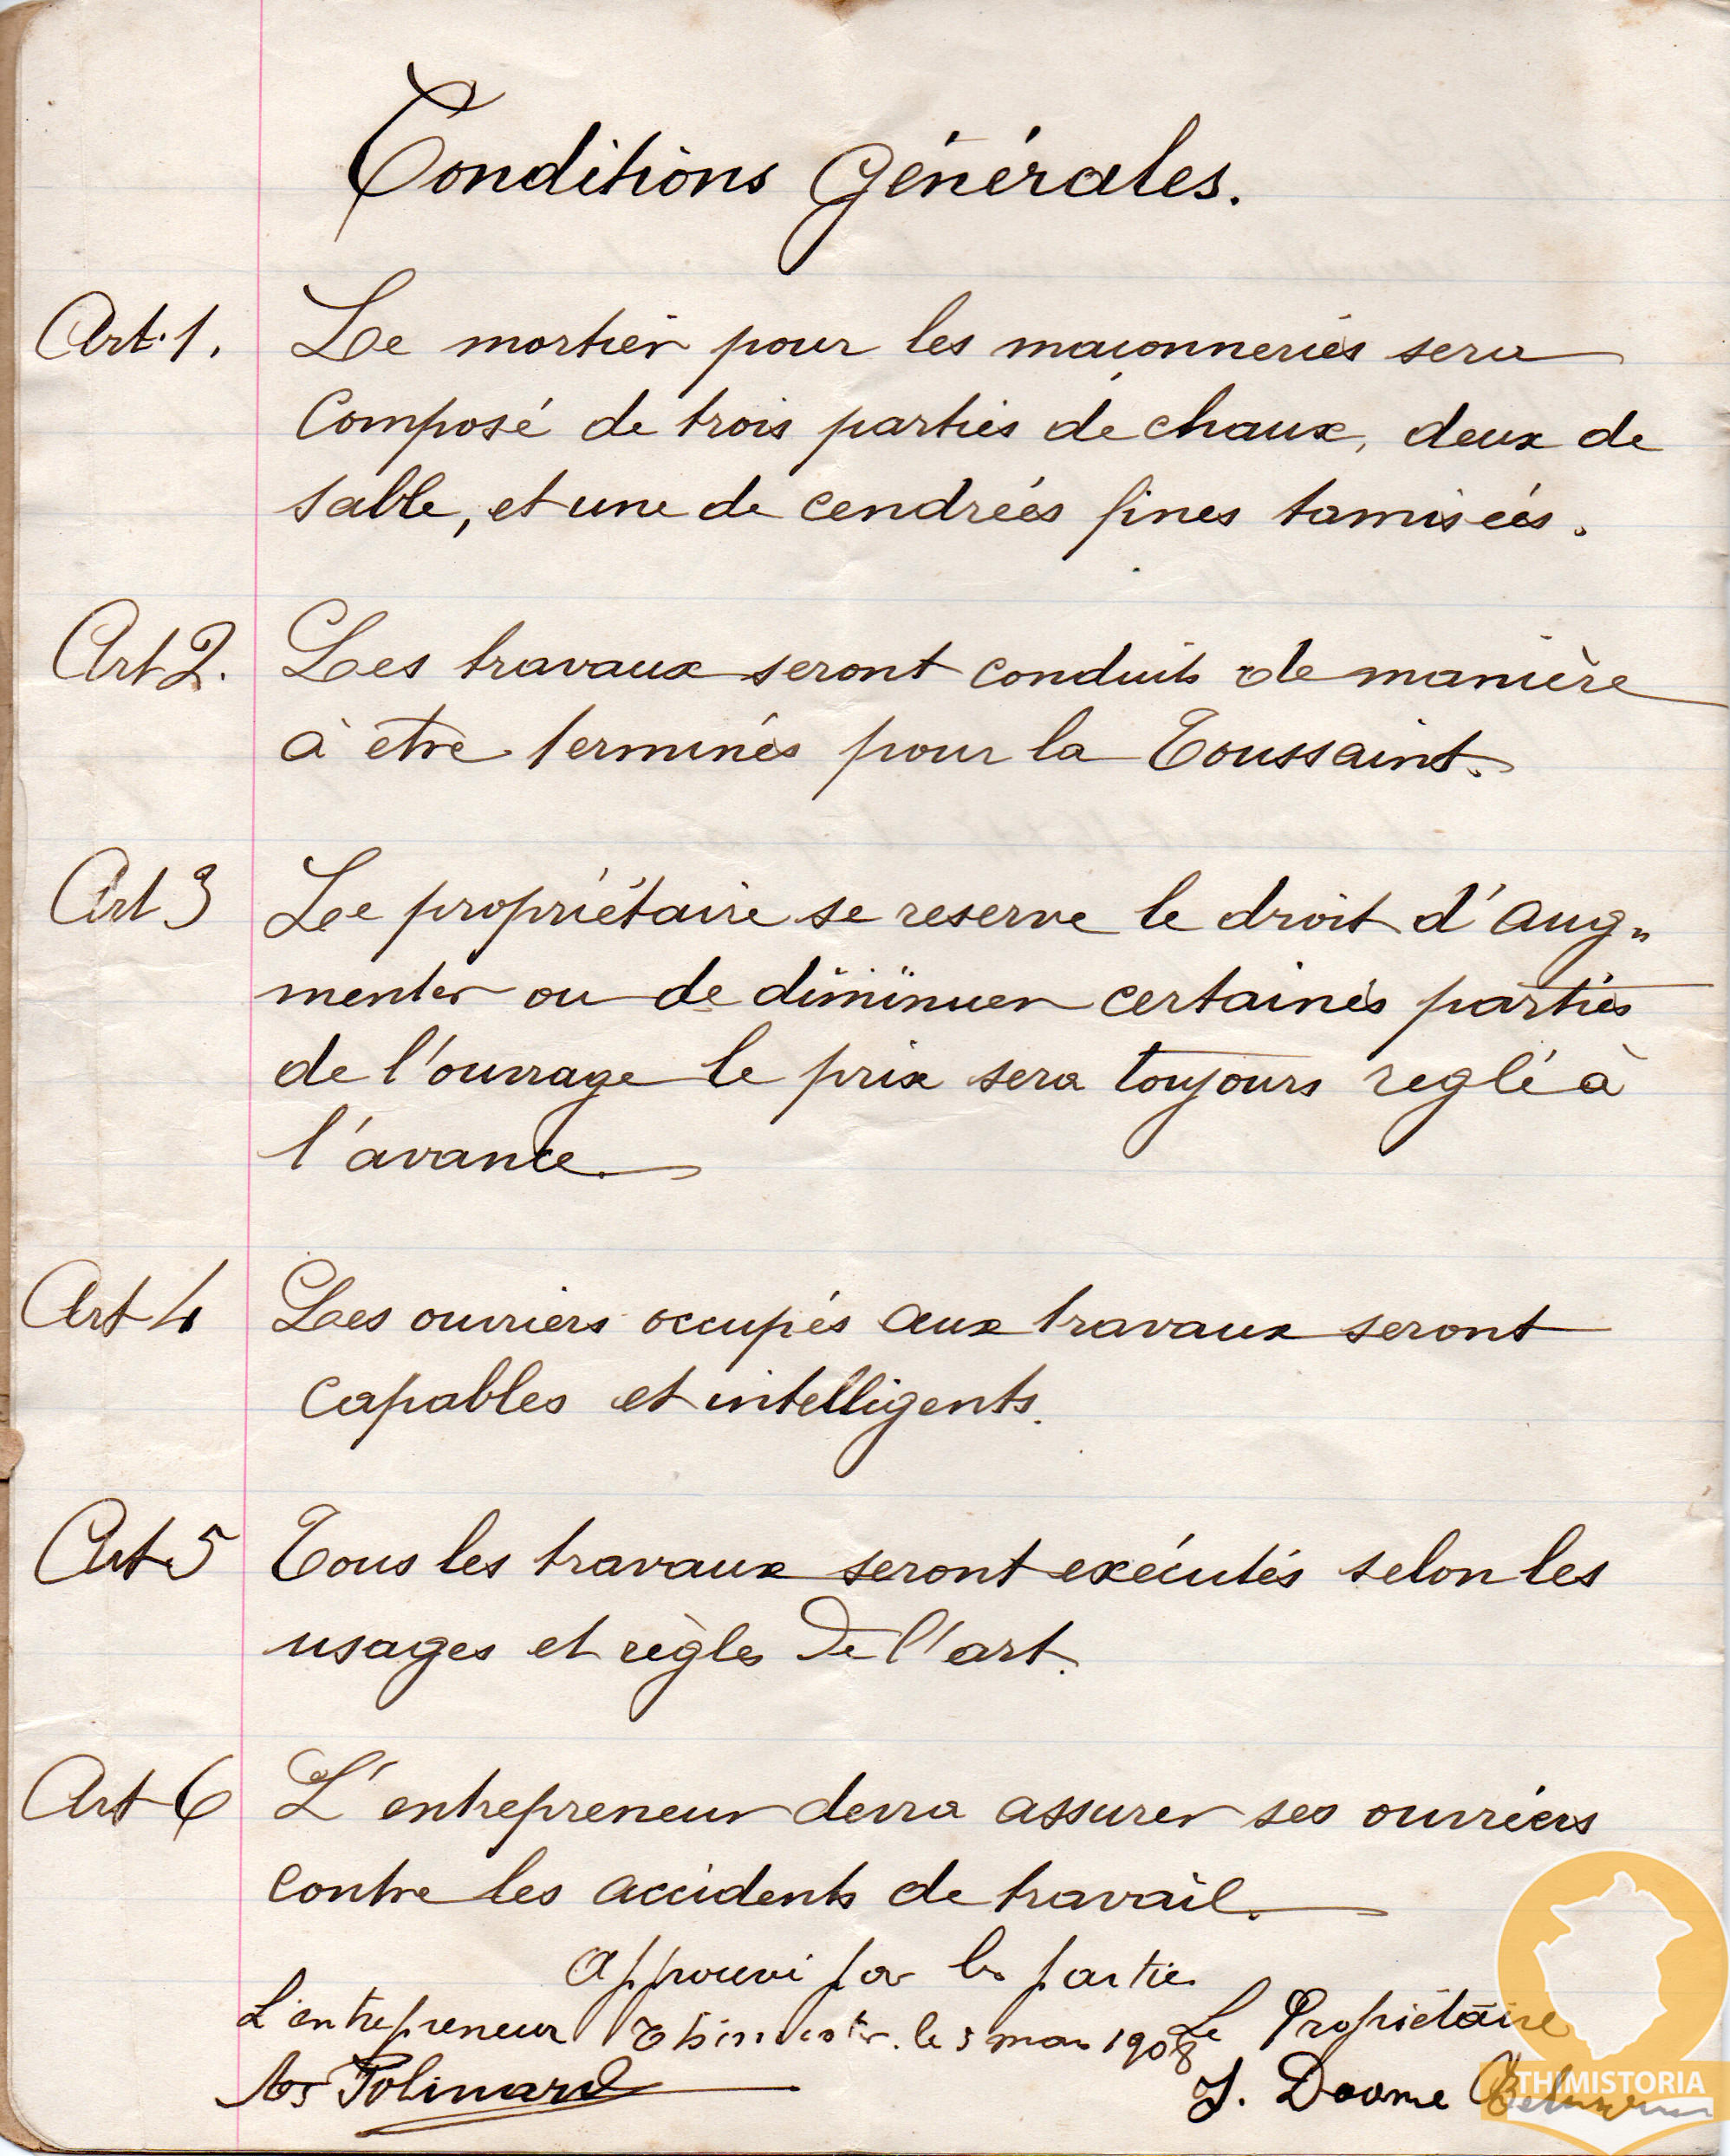 Conditions Générales.
Art. 1. Le mortier pour les maçonneries sera
Composé de trois parties de chaux, deux de
sable, et une de cendrées fines tamisées.
Art 2. Les travaux seront conduits de manière
à être terminés pour la Toussaint.
Art 3 Le propriétaire se reserve le droit d'aug„
menter ou de diminuer certaines parties
de l'ouvrage le prix sera toujours reglé à
l'avance.
Art 4 Les ouvriers occupés aux travaux seront
capables et intelligents.
Art 5 Tous les travaux seront exécutés selon les
usages et règles de l'art.
Art 6 L'entrepreneur devra assurer ses ouvriers
contre les accidents de travail.
Approuvé par les parties
L'entrepreneur Thimister. le 3 mars 1908 Le Propriétaire
Polinard J. Doome
THIMISTORIA